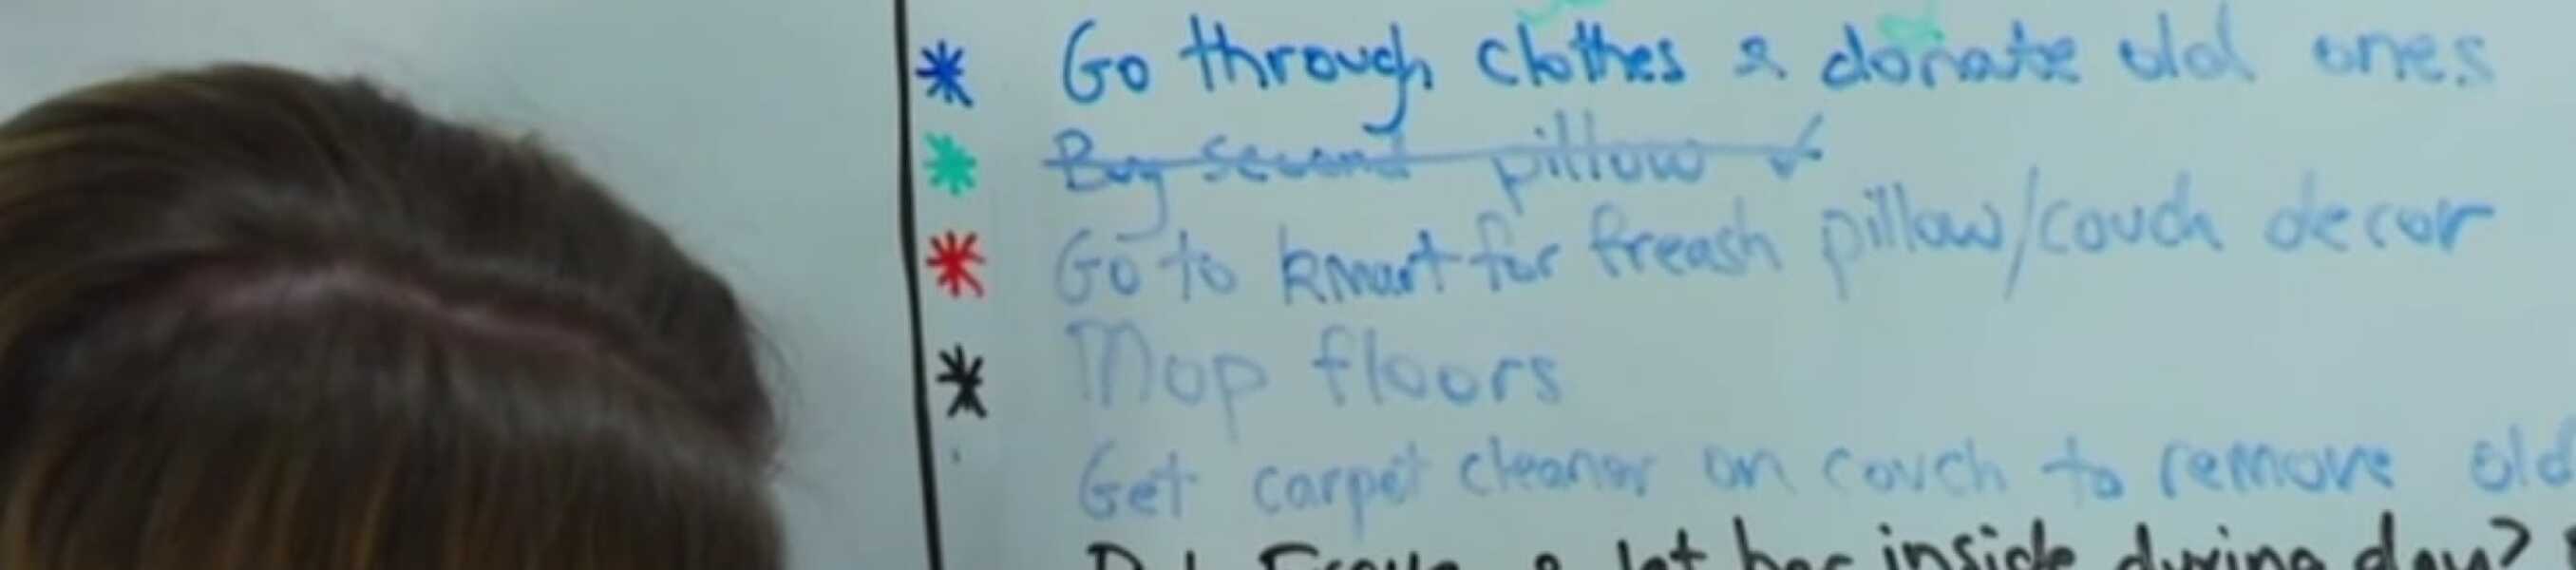 * Go through clothes & donate old ones
* Buy second pillow ✓
* Go to kmart for freash pillow/couch decor
* Mop floors
Get carpet cleaner on couch to remove old
& let her inside during day?